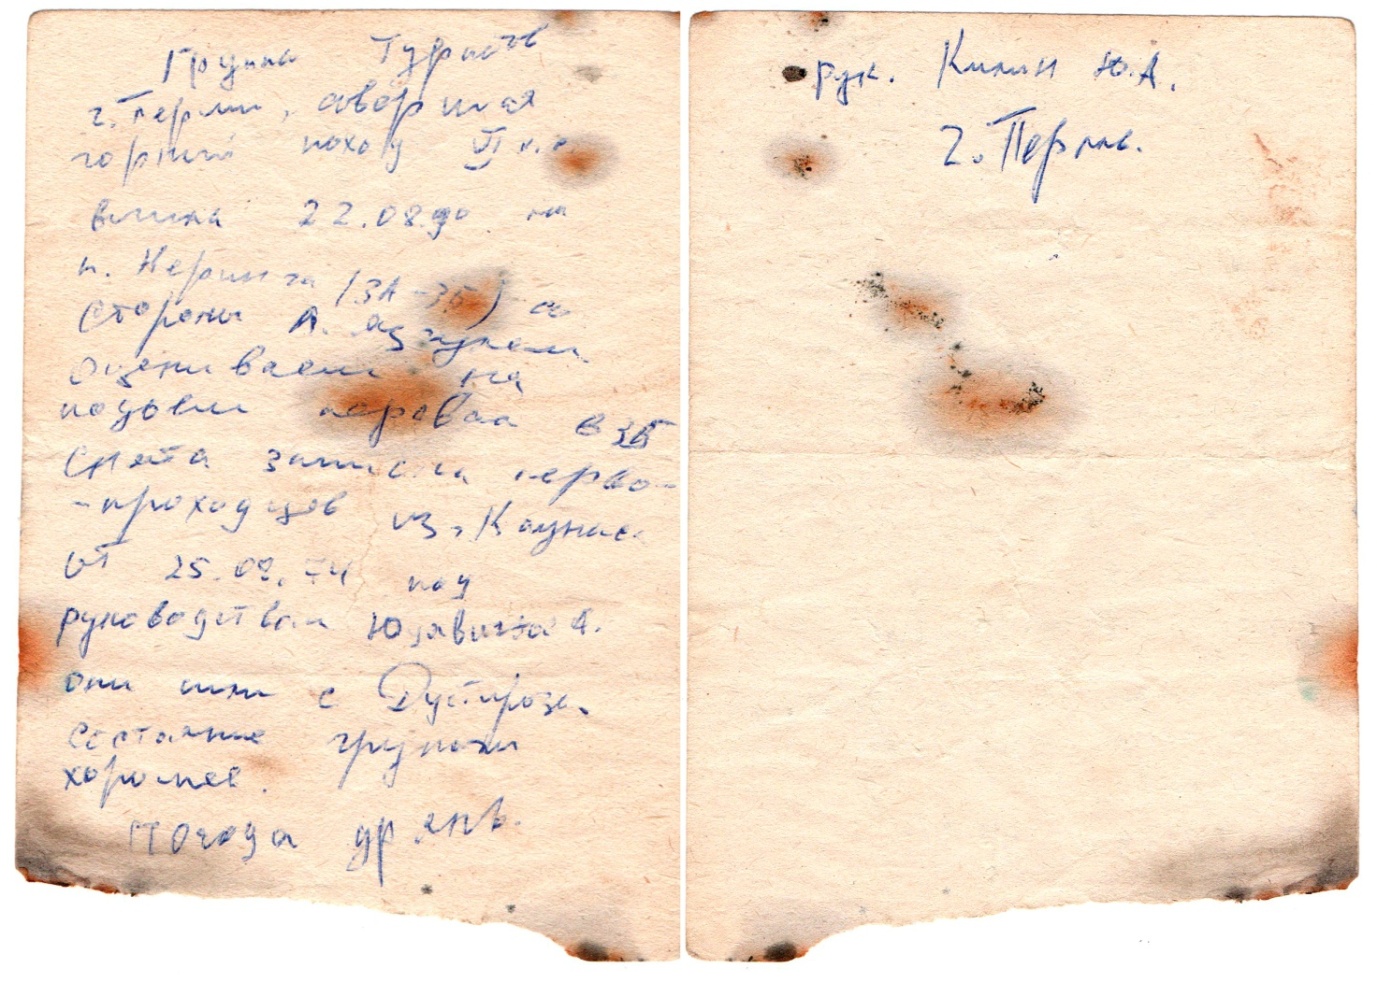 Группа Туристов
г. Перми, совершая
горный поход VI к.с
вышла 22.08.90 на
п. Неринга (3А-3Б) со
Стороны л.
оцениваем на
подъем перевал в 3Б
Снята записка перво-
-проходцев из г. Каунас.
от 25.08.74 под
руководством А.
они шли с Дустироза.
состояние группы
хорошее.
Погода дрянь.
рук. Килин Ю.А.
г. Пермь.